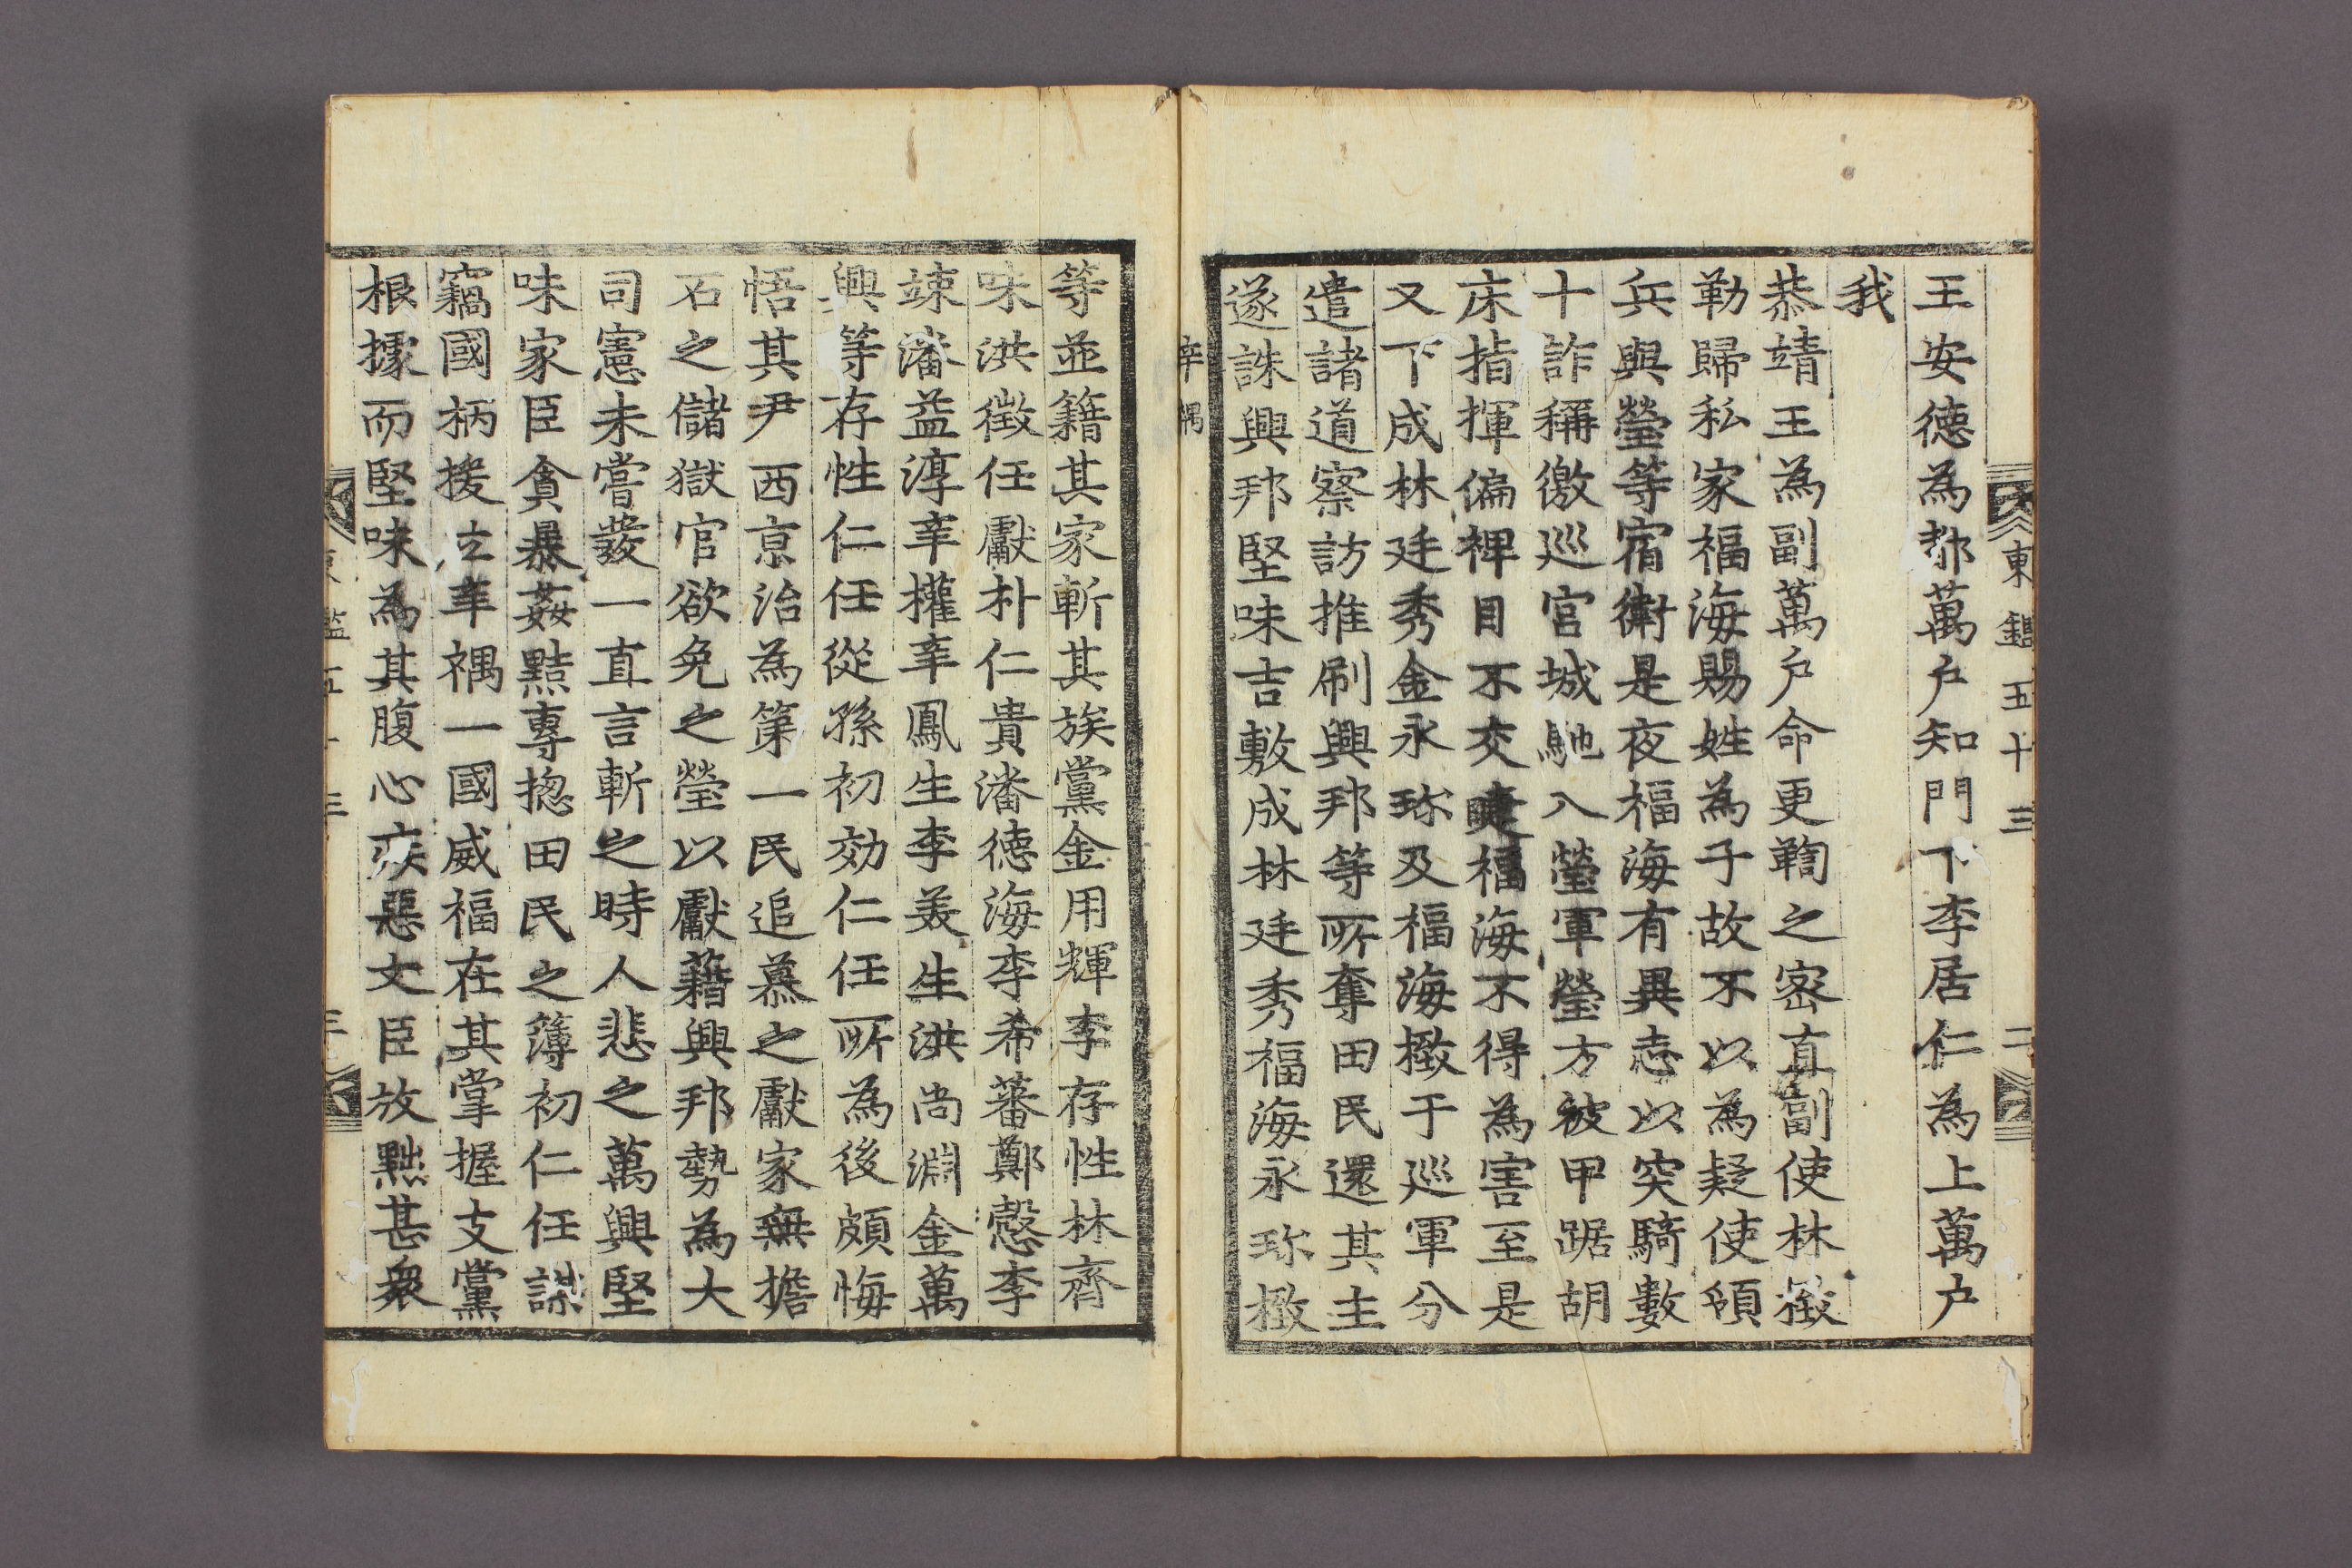 東鑑五十三 二
王安德為都萬户知門下李居仁為上萬户
我
恭靖王為副萬户命更鞫之密直副使林㮹
勒歸私家福海賜姓為子故不以為疑使領
兵與瑩等宿衛是夜福海有異志以突騎數
十詐稱徼巡宫城馳入瑩軍瑩方被甲踞胡
床指揮偏裨目不交睫福海不得為害至是
又下成林廷秀金永珎及福海㮹于巡軍分
遣諸道察訪推刷興邦等所奪田民還其主
遂誅興邦堅味吉敷成林廷秀福海永珎㮹
辛禑
等並籍其家斬其族黨金用輝李存性林齊
味洪徵任獻朴仁貴潘德海李希蕃鄭慤李
竦潘益淳辛權辛鳳生李美生洪尚淵金萬
興等存性仁任從孫初効仁任所為後頗悔
悟其尹西京治為第一民追慕之獻家無擔
石之儲獄官欲免之瑩以獻藉興邦勢為大
司憲未嘗發一直言斬之時人悲之萬興堅
味家臣貪暴姦黠專揔田民之簿初仁任謀
竊國柄援立辛禑一國威福在其掌握支黨
根據而堅味為其腹心疾惡文臣放黜甚衆